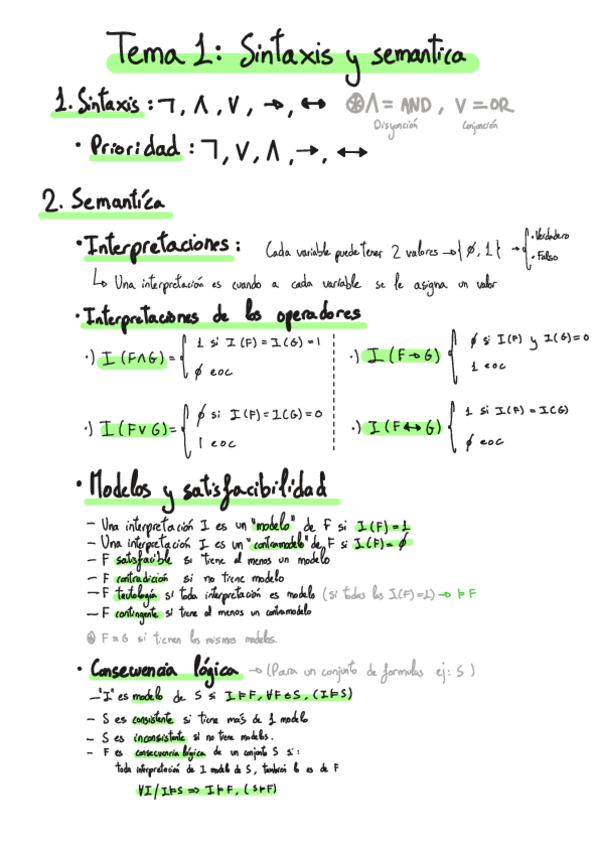 Tema 1: Sintaxis y semantica
1. Sintaxis : ¬, ∧, ∨, →, ↔ ⊛ ∧ = AND , ∨ = OR
Disyunción Conjunción
• Prioridad : ¬, ∨, ∧, →, ↔
2. Semantica
• Interpretaciones : Cada variable puede tener 2 valores → {∅, 1} → { • Verdadero
• Falso
↳ Una interpretación es cuando a cada variable se le asigna un valor
• Interpretaciones de los operadores
•) I (F∧G) = { 1 si I(F) = I(G) = 1
∅ eoc
•) I (F→G) { ∅ si I(F) y I(G)=0
1 eoc
•) I (F∨G) = { ∅ si I(F) = I(G) = 0
1 eoc
•) I (F↔G) { 1 si I(F) = I(G)
∅ eoc
• Modelos y satisfacibilidad
– Una interpretación I es un "modelo" de F si I(F) = 1
– Una interpretación I es un "contramodelo" de F si I(F) = ∅
– F satisfacible si tiene al menos un modelo
– F contradición si no tiene modelo
– F tautología si toda interpretación es modelo (si todas las I(F)=1) → ⊨ F
– F contingente si tiene al menos un contramodelo
⊛ F ≡ G si tienen los mismos modelos.
• Consecuencia lógica → (Para un conjunto de formulas ej: S )
– 'I' es modelo de S si I⊨F, ∀F∈S, (I⊨S)
– S es consistente si tiene más de 1 modelo
– S es inconsistente si no tiene modelos.
– F es consecuencia lógica de un conjunto S si:
toda interpretación de I modelo de S, tambien lo es de F
∀I / I⊨S ⇒ I⊨F, ( S⊨F)